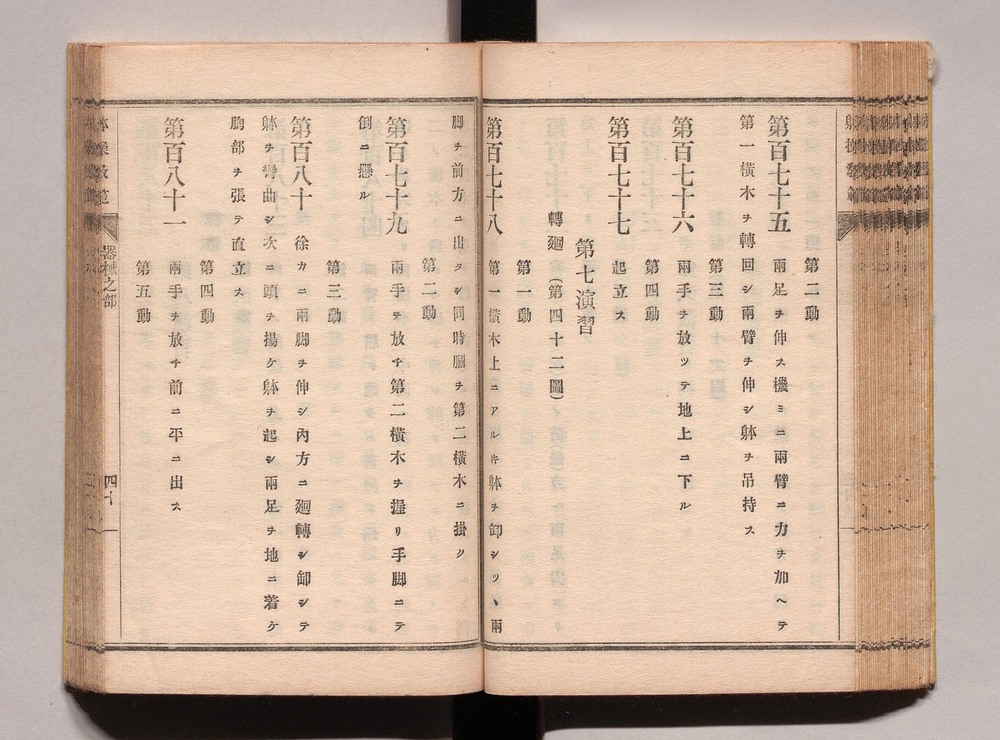 第二動
第百七十五 兩足ヲ伸ス機ミニ兩臂ニ力ヲ加ヘテ
第一橫木ヲ轉回シ兩臂ヲ伸シ躰ヲ吊持ス
第三動
第百七十六 兩手ヲ放ツテ地上ニ下ル
第四動
第百七十七 起立ス
第七演習
轉廻(第四十二圖)
第一動
第百七十八 第一橫木上ニアルキ躰ヲ卸シツヽ兩
脚ヲ前方ニ出タシ同時膕ヲ第二橫木ニ掛ク
第二動
第百七十九 兩手ヲ放チ第二橫木ヲ握リ手脚ニテ
倒ニ懸ル
第三動
第百八十 徐カニ兩脚ヲ伸シ內方ニ廻轉シ卸シテ
躰ヲ彎曲シ次ニ頭ヲ揚ケ躰ヲ起シ兩足ヲ地ニ着ケ
胸部ヲ張テ直立ス
第四動
第百八十一 兩手ヲ放チ前ニ平ニ出ス
第五動
器械之部